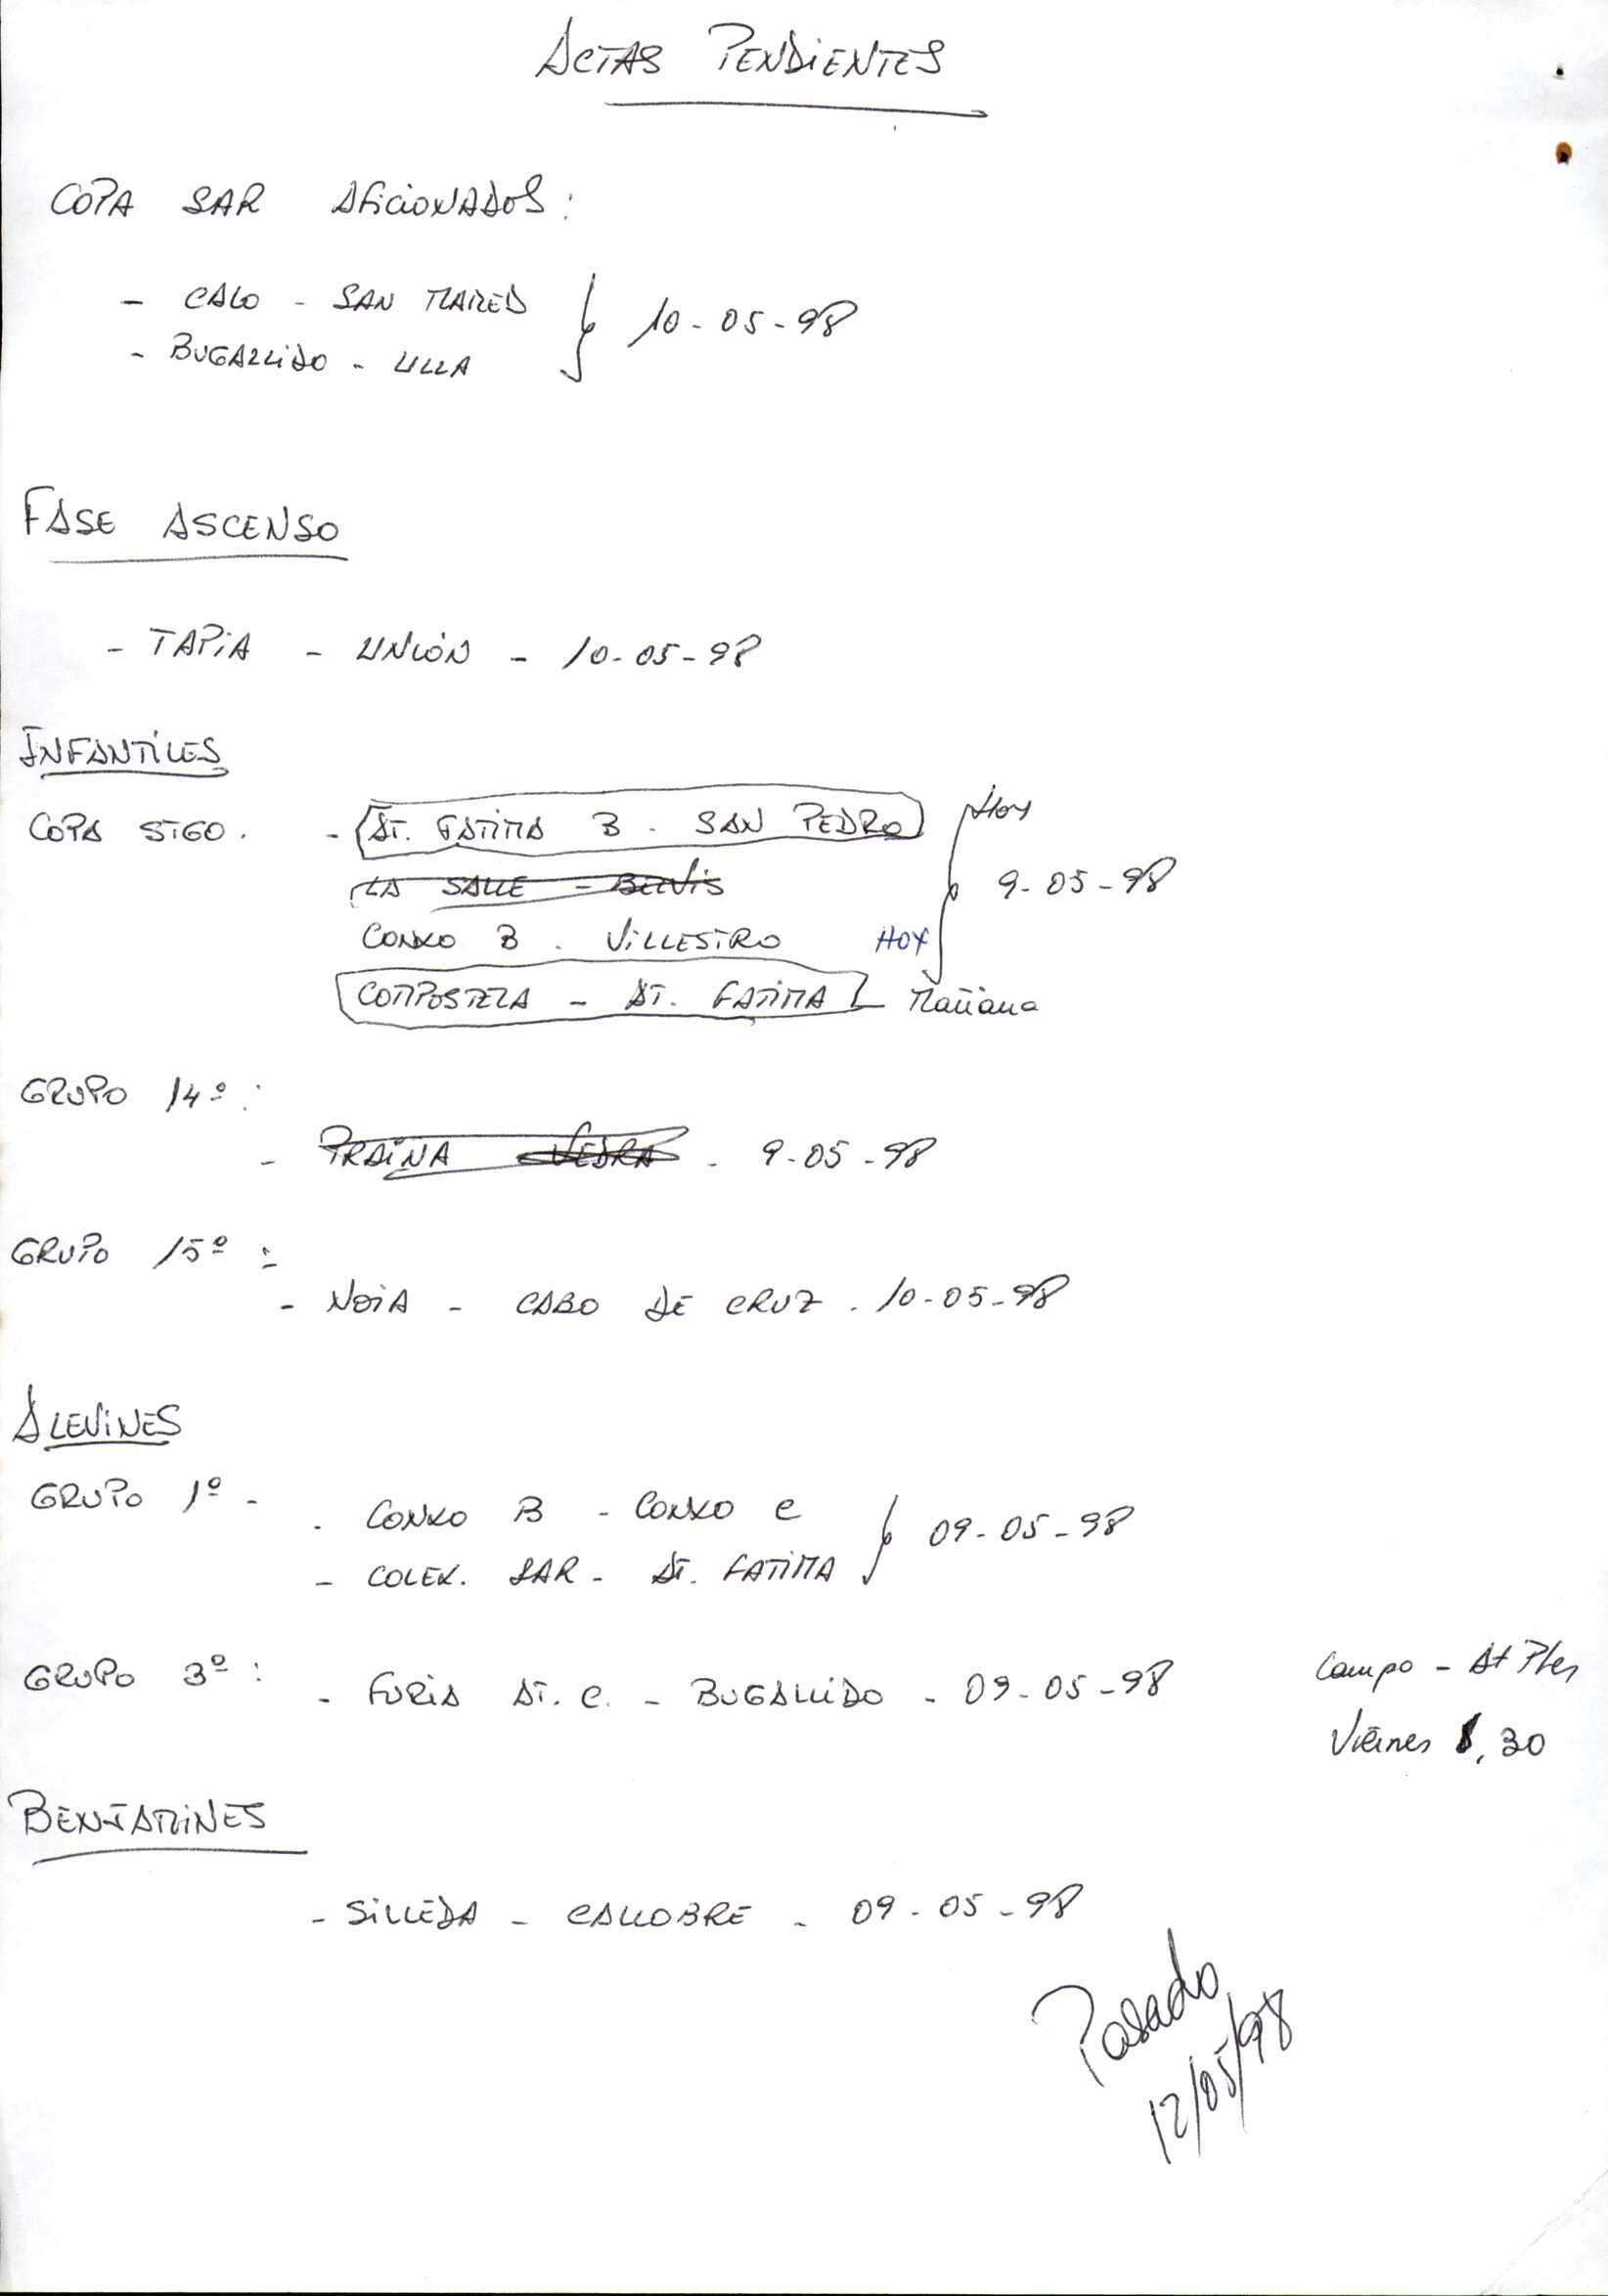 ACTAS PENDIENTES
COPA SAR AFICIONADOS:
- CALO - SAN MAMED
- BUGALLIDO - ULLA
10-05-98
FASE ASCENSO
- TAPIA - UNIÓN - 10-05-98
INFANTILES
COPA STGO. - AT. FATIMA B - SAN PEDRO Hoy
LA SALLE - BELVIS 9-05-98
CONXO B - VILLESTRO HOY
COMPOSTELA - AT. FATIMA - Mañana
GRUPO 14º:
- PRAIÑA VEDRA - 9-05-98
GRUPO 15º:
- NOIA - CABO DE CRUZ - 10-05-98
ALEVINES
GRUPO 1º -
- CONXO B - CONXO C
- COLEX. SAR - AT. FATIMA
09-05-98
GRUPO 3º:
- FURIA AT. C. - BUGALLIDO - 09-05-98
Campo - At
Viernes 8,30
BENJAMINES
- SILLEDA - CALLOBRE - 09-05-98
Pasado
12/05/98